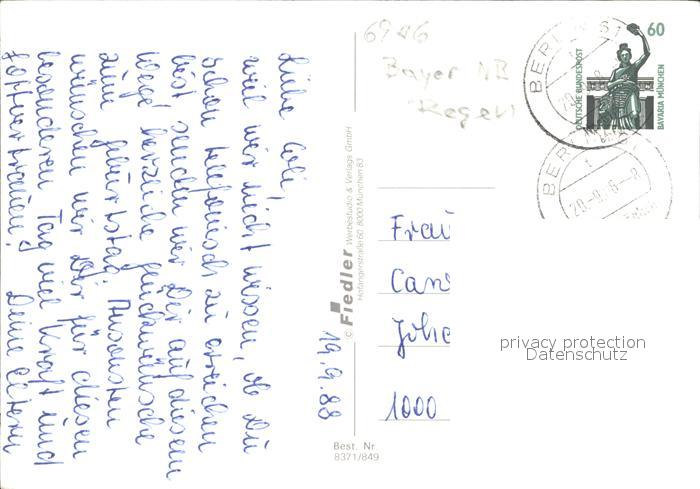 Liebe
weil wir nicht wissen, ob Du
schon telefonisch zu erreichen
bist senden wir Dir auf diesem
Wege herzliche Glückwünsche
zum Geburtstag. Ansonsten
wünschen wir Dir für diesen
besonderen Tag viel Kraft und
Gottvertrauen! Deine Eltern
19.9.88
© Fiedler Werbestudio & Verlags GmbH
Hofangerstraße 60 8000 München 83
Best. Nr
8371/849
Bayer
Regen
60
DEUTSCHE BUNDESPOST
BAVARIA MÜNCHEN
BERLIN
BER
Frau
1000
privacy protection
Datenschutz